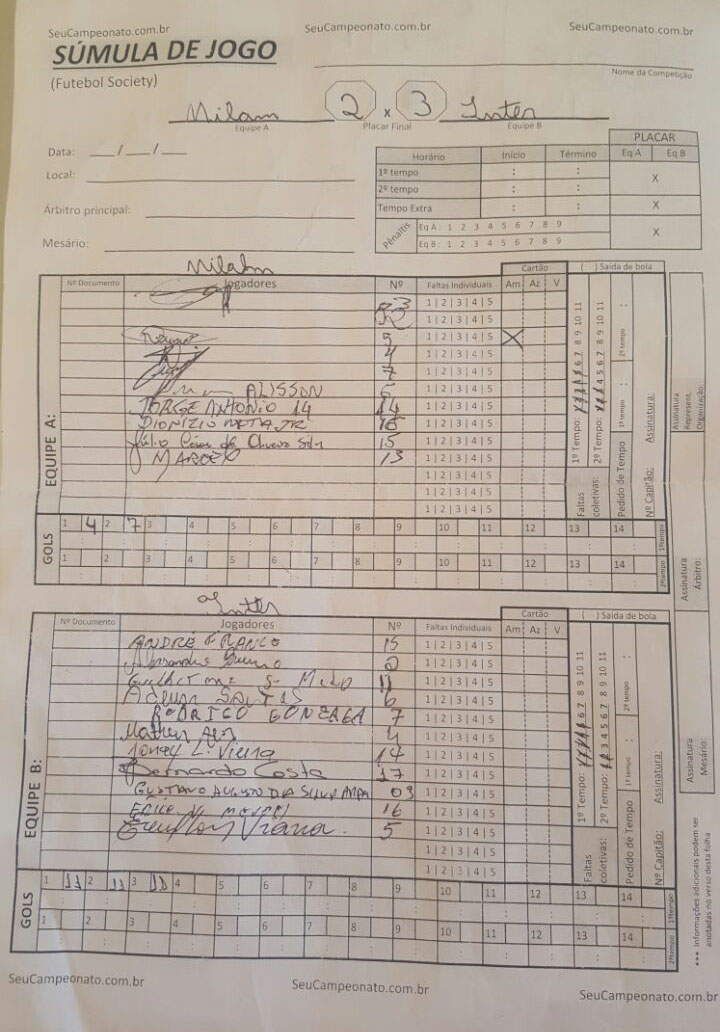 SeuCampeonato.com.br SeuCampeonato.com.br SeuCampeonato.com.br
SÚMULA DE JOGO
(Futebol Society)
Nome da Competição
Milam 2 x 3 Inter
Equipe A Placar Final Equipe B
PLACAR
Data: __/__/__
Horário Início Término Eq A Eq B
Local:
1º tempo : : X
2º tempo : :
Árbitro principal:
Tempo Extra : : X
Pênaltis
Eq A: 1 2 3 4 5 6 7 8 9 X
Eq B: 1 2 3 4 5 6 7 8 9
Mesário:
Milam
Cartão ( ) Saída de bola
Nº Documento Jogadores Nº Faltas Individuais Am Az V
EQUIPE A:
1|2|3|4|5
1|2|3|4|5
5 1|2|3|4|5 X
4 1|2|3|4|5
7 1|2|3|4|5
ALISSON 6 1|2|3|4|5
JORGE ANTONIO 14 14 1|2|3|4|5
DIONIZIO MOTA JR 16 1|2|3|4|5
15 1|2|3|4|5
13 1|2|3|4|5
1|2|3|4|5
1|2|3|4|5
1|2|3|4|5
Faltas coletivas:
1º Tempo: 1 2 3 4 5 6 7 8 9 10 11
2º Tempo: 1 2 3 4 5 6 7 8 9 10 11
Pedido de Tempo 1º tempo : 2º tempo :
Nº Capitão: Assinatura:
GOLS
1 4 2 7 3 4 5 6 7 8 9 10 11 12 13 14 1ºtempo
1 2 3 4 5 6 7 8 9 10 11 12 13 14 2ºtempo
Inter
Cartão ( ) Saída de bola
Nº Documento Jogadores Nº Faltas Individuais Am Az V
EQUIPE B:
ANDRÉ FRANCO 15 1|2|3|4|5
1|2|3|4|5
Guilherme S. Melo 11 1|2|3|4|5
SANTOS 6 1|2|3|4|5
RODRIGO GONZAGA 7 1|2|3|4|5
4 1|2|3|4|5
L. Vieira 14 1|2|3|4|5
Bernardo Costa 17 1|2|3|4|5
GUSTAVO AUGUSTO DA SILVA 03 1|2|3|4|5
16 1|2|3|4|5
Viana. 5 1|2|3|4|5
1|2|3|4|5
1|2|3|4|5
Faltas coletivas:
1º Tempo: 1 2 3 4 5 6 7 8 9 10 11
2º Tempo: 1 2 3 4 5 6 7 8 9 10 11
Pedido de Tempo 1º tempo : 2º tempo :
Nº Capitão: Assinatura:
GOLS
1 11 2 11 3 11 4 5 6 7 8 9 10 11 12 13 14 1ºtempo
1 2 3 4 5 6 7 8 9 10 11 12 13 14 2ºtempo
Assinatura Represent. Organização:
Assinatura Árbitro:
Assinatura Mesário:
*** Informações adicionais podem ser anotadas no verso desta folha
SeuCampeonato.com.br SeuCampeonato.com.br SeuCampeonato.com.br